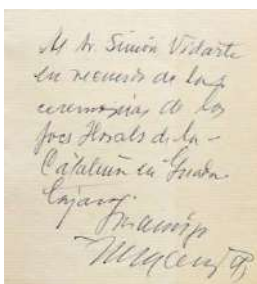 Al Sr. Simón Vidarte
en recuerdo de las
ceremonias de los
Jocs Florals de la
Catalun en Guada
lajara
Su amigo